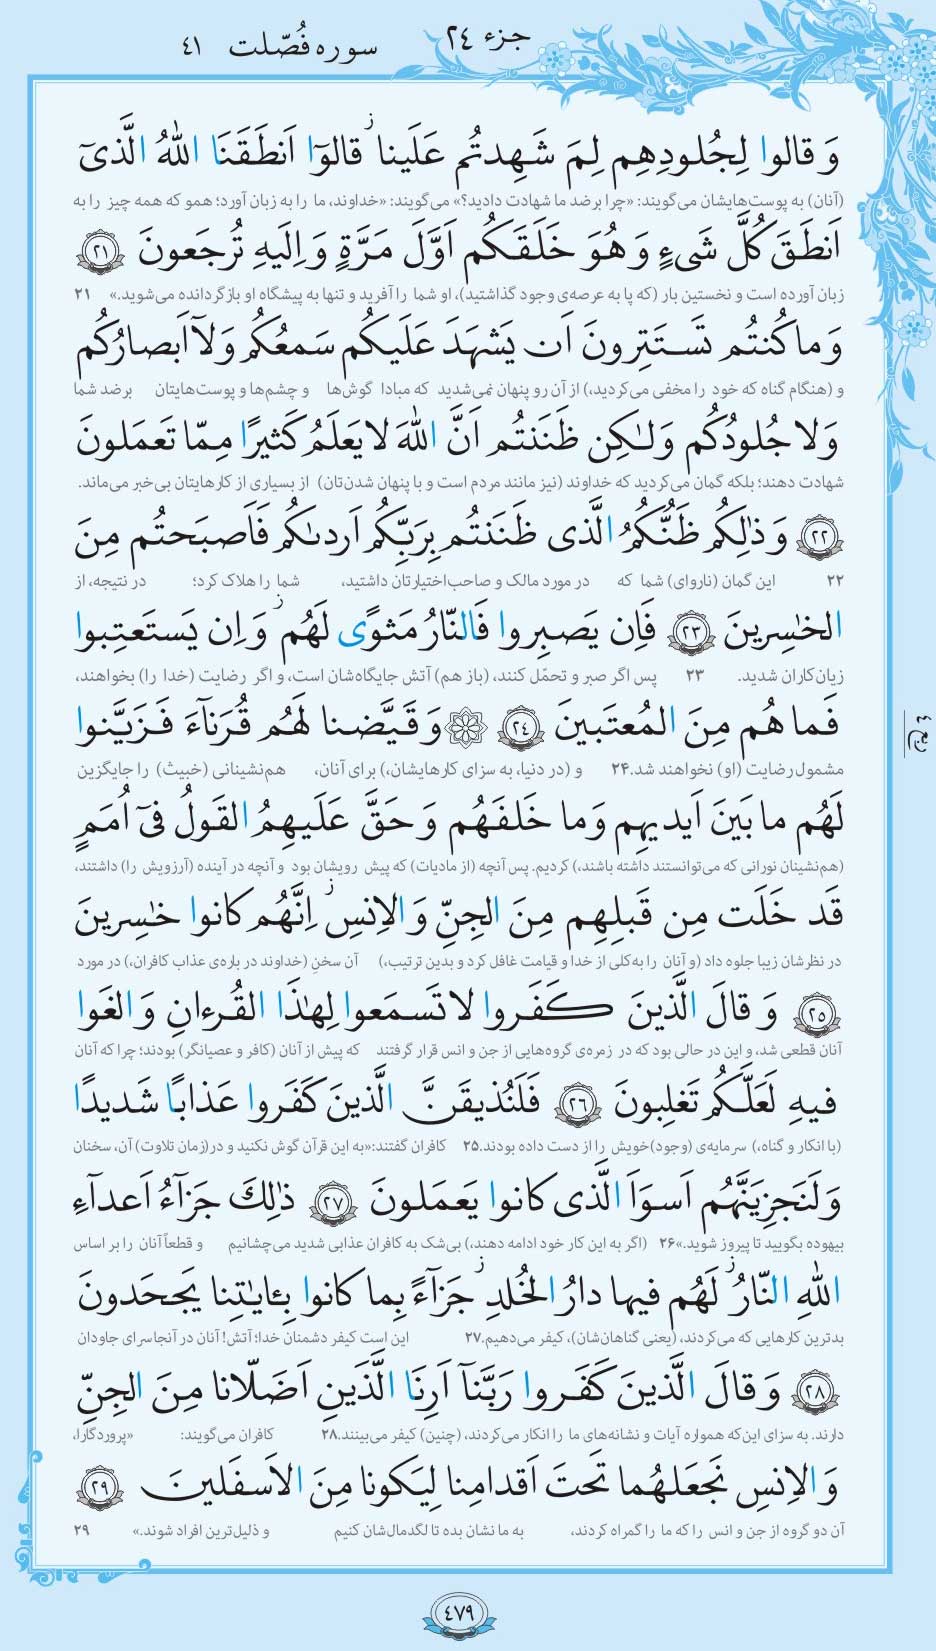 جزء ۲۴
سوره فُصّلت ۴۱
وَ قالوا لِجُلودِهِم لِمَ شَهِدتُم عَلَينا ۖ قالوٓا اَنطَقَنَا اللّٰهُ الَّذیٓ
(آنان) به پوست‌هایشان می‌گویند: «چرا برضد ما شهادت دادید؟» می‌گویند: «خداوند، ما را به زبان آورد؛ همو که همه چیز را به
اَنطَقَ کُلَّ شَیءٍ وَ هُوَ خَلَقَکُم اَوَّلَ مَرَّةٍ وَ اِلَیهِ تُرجَعونَ ۲۱
زبان آورده است و نخستین بار (که پا به عرصه‌ی وجود گذاشتید)، او شما را آفرید و تنها به پیشگاه او بازگردانده می‌شوید.» ۲۱
وَ ما کُنتُم تَستَتِرونَ اَن یَشهَدَ عَلَیکُم سَمعُکُم وَ لآ اَبصارُکُم
و (هنگام گناه که خود را مخفی می‌کردید،) از آن رو پنهان نمی‌شدید که مبادا گوش‌ها و چشم‌ها و پوست‌هایتان برضد شما
وَ لا جُلودُکُم وَ لٰکِن ظَنَنتُم اَنَّ اللّٰهَ لا یَعلَمُ کَثیرًا مِمّا تَعمَلونَ
شهادت دهند؛ بلکه گمان می‌کردید که خداوند (نیز مانند مردم است و با پنهان شدن‌تان) از بسیاری از کارهایتان بی‌خبر می‌ماند.
۲۲ وَ ذٰلِکُم ظَنُّکُمُ الَّذی ظَنَنتُم بِرَبِّکُم اَردىٰکُم فَاَصبَحتُم مِنَ
۲۲ این گمان (ناروای) شما که در مورد مالک و صاحب‌اختیارتان داشتید، شما را هلاک کرد؛ در نتیجه، از
الخٰسِرینَ ۲۳ فَاِن یَصبِروا فَالنّارُ مَثوًی لَهُم ۖ وَ اِن یَستَعتِبوا
زیان‌کاران شدید. ۲۳ پس اگر صبر و تحمّل کنند، (باز هم) آتش جایگاه‌شان است، و اگر رضایت (خدا را) بخواهند،
فَما هُم مِنَ المُعتَبینَ ۲۴ وَ قَیَّضنا لَهُم قُرَنآءَ فَزَیَّنوا
مشمول رضایت (او) نخواهند شد.۲۴ و (در دنیا، به سزای کارهایشان،) برای آنان، هم‌نشینانی (خبیث) را جایگزین
ربع ٤
لَهُم ما بَینَ اَیدیهِم وَ ما خَلفَهُم وَ حَقَّ عَلَیهِمُ القَولُ فیٓ اُمَمٍ
(هم‌نشینان نورانی که می‌توانستند داشته باشند،) کردیم. پس آنچه (از مادیات) که پیش رویشان بود و آنچه در آینده (آرزویش را) داشتند،
قَد خَلَت مِن قَبلِهِم مِنَ الجِنِّ وَ الاِنسِ ۖ اِنَّهُم کانوا خٰسِرینَ
در نظرشان زیبا جلوه داد (و آنان را به‌کلی از خدا و قیامت غافل کرد و بدین ترتیب،) آن سخنِ (خداوند در باره‌ی عذاب کافران،) در مورد
۲۵ وَ قالَ الَّذینَ کَفَروا لا تَسمَعوا لِهٰذَا القُرءانِ وَ الغَوا
آنان قطعی شد، و این در حالی بود که در زمره‌ی گروه‌هایی از جن و انس قرار گرفتند که پیش از آنان (کافر و عصیانگر) بودند؛ چرا که آنان
فیهِ لَعَلَّکُم تَغلِبونَ ۲۶ فَلَنُذیقَنَّ الَّذینَ کَفَروا عَذابًا شَدیدًا
(با انکار و گناه،) سرمایه‌ی (وجود) خویش را از دست داده بودند.۲۵ کافران گفتند:«به این قرآن گوش نکنید و در(زمان تلاوت) آن، سخنان
وَ لَنَجزِیَنَّهُم اَسوَاَ الَّذی کانوا یَعمَلونَ ۲۷ ذٰلِکَ جَزآءُ اَعدآءِ
بیهوده بگویید تا پیروز شوید.»۲۶ (اگر به این کار خود ادامه دهند،) بی‌شک به کافران عذابی شدید می‌چشانیم و قطعاً آنان را بر اساس
اللّٰهِ النّارُ ۖ لَهُم فیها دارُ الخُلدِ ۖ جَزآءً بِما کانوا بِـٔایٰتِنا یَجحَدونَ
بدترین کارهایی که می‌کردند، (یعنی گناهان‌شان)، کیفر می‌دهیم.۲۷ این است کیفر دشمنان خدا؛ آتش! آنان در آنجا سرای جاودان
۲۸ وَ قالَ الَّذینَ کَفَروا رَبَّنآ اَرِنَا الَّذَینِ اَضَلّانا مِنَ الجِنِّ
دارند. به سزای این‌که همواره آیات و نشانه‌های ما را انکار می‌کردند، (چنین) کیفر می‌بینند.۲۸ کافران می‌گویند: «پروردگارا،
وَ الاِنسِ نَجعَلهُما تَحتَ اَقدامِنا لِیَکونا مِنَ الاَسفَلینَ ۲۹
آن دو گروه از جن و انس را که ما را گمراه کردند، به ما نشان بده تا لگدمال‌شان کنیم و ذلیل‌ترین افراد شوند.» ۲۹
٤٧٩